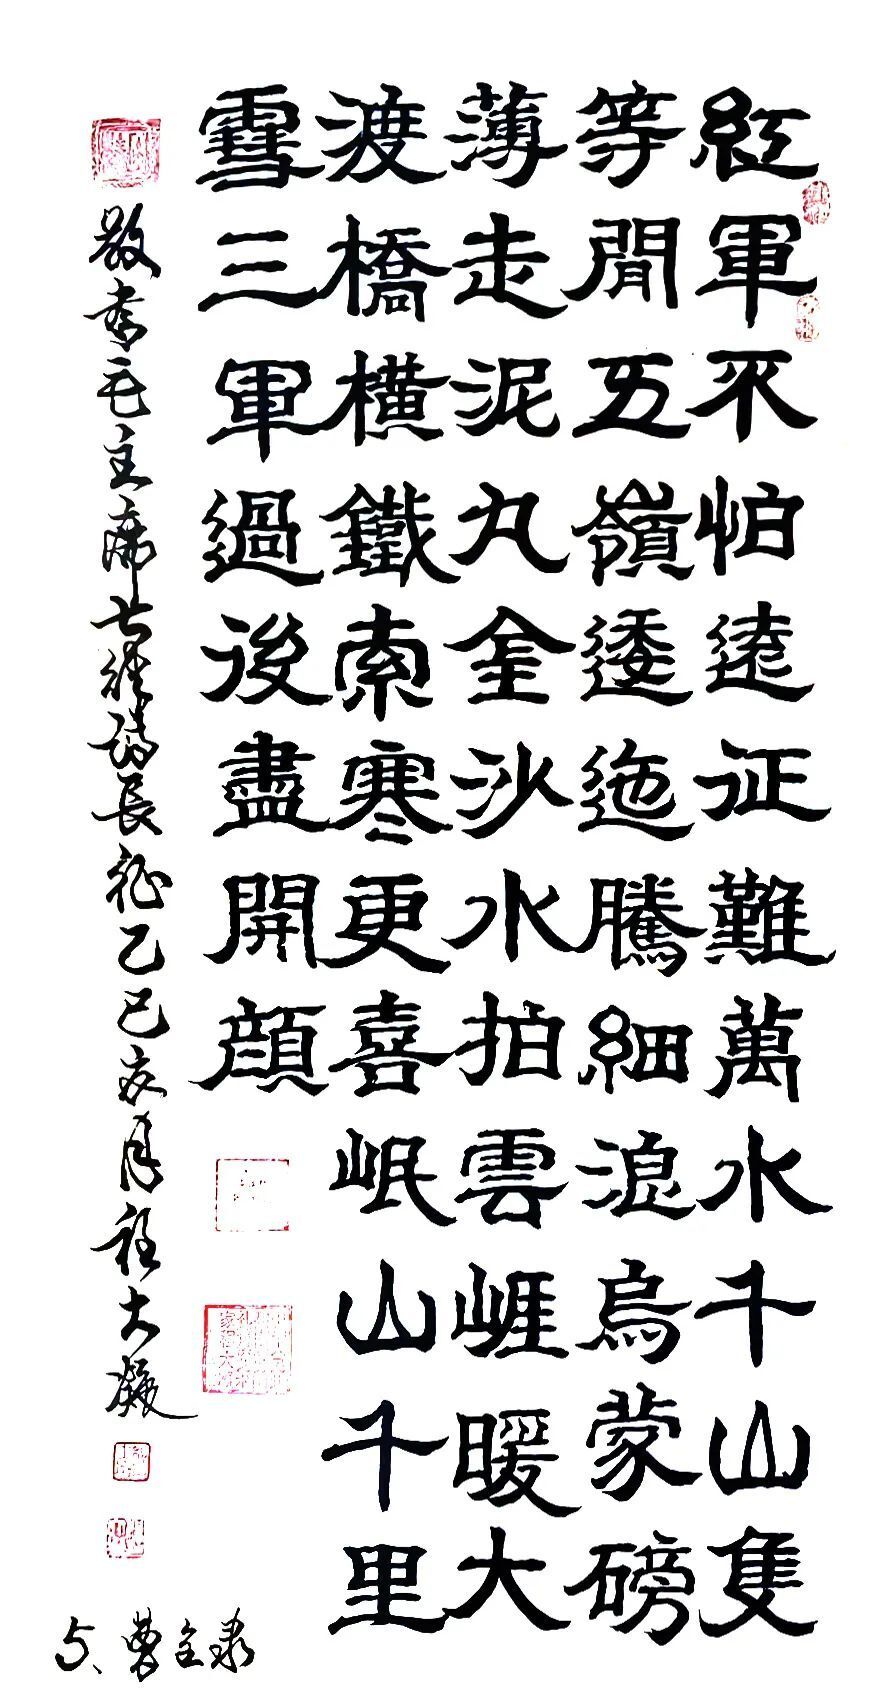 紅軍不怕遠征難萬水千山隻
等閒五嶺逶迤騰細浪烏蒙磅
薄走泥丸金沙水拍雲崕暖大
渡橋橫鐵索寒更喜岷山千里
雪三軍過後盡開顏
敬書毛主席七律詩長征乙巳亥月程大
曹全隶